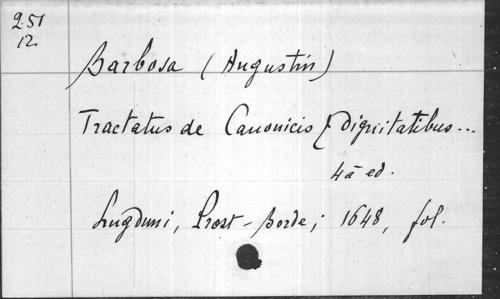 251
12
Barbosa (Augustin)
Tractatus de Canonicis & Dignitatibus...
4a ed.
Lugduni, Prost-Borde; 1648, fol.